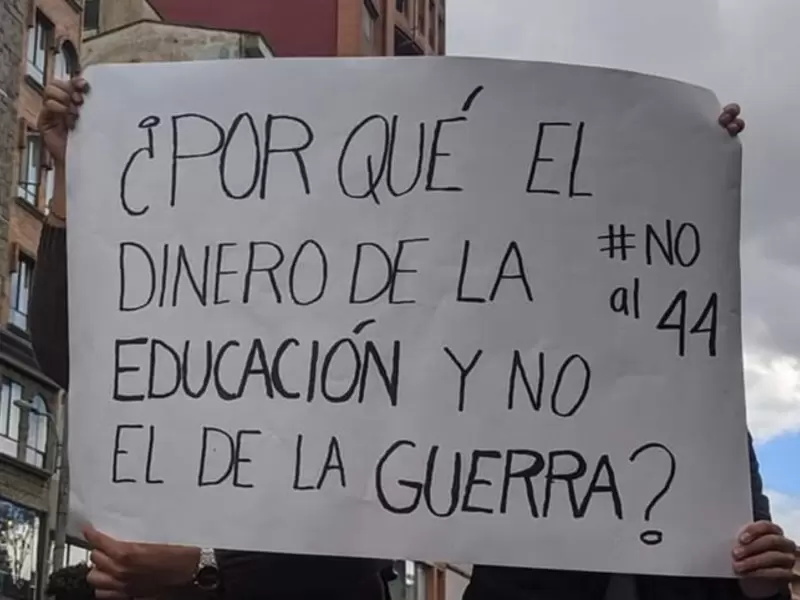 ¿POR QUÉ EL
DINERO DE LA
EDUCACIÓN Y NO
EL DE LA GUERRA?
#NO
al 44